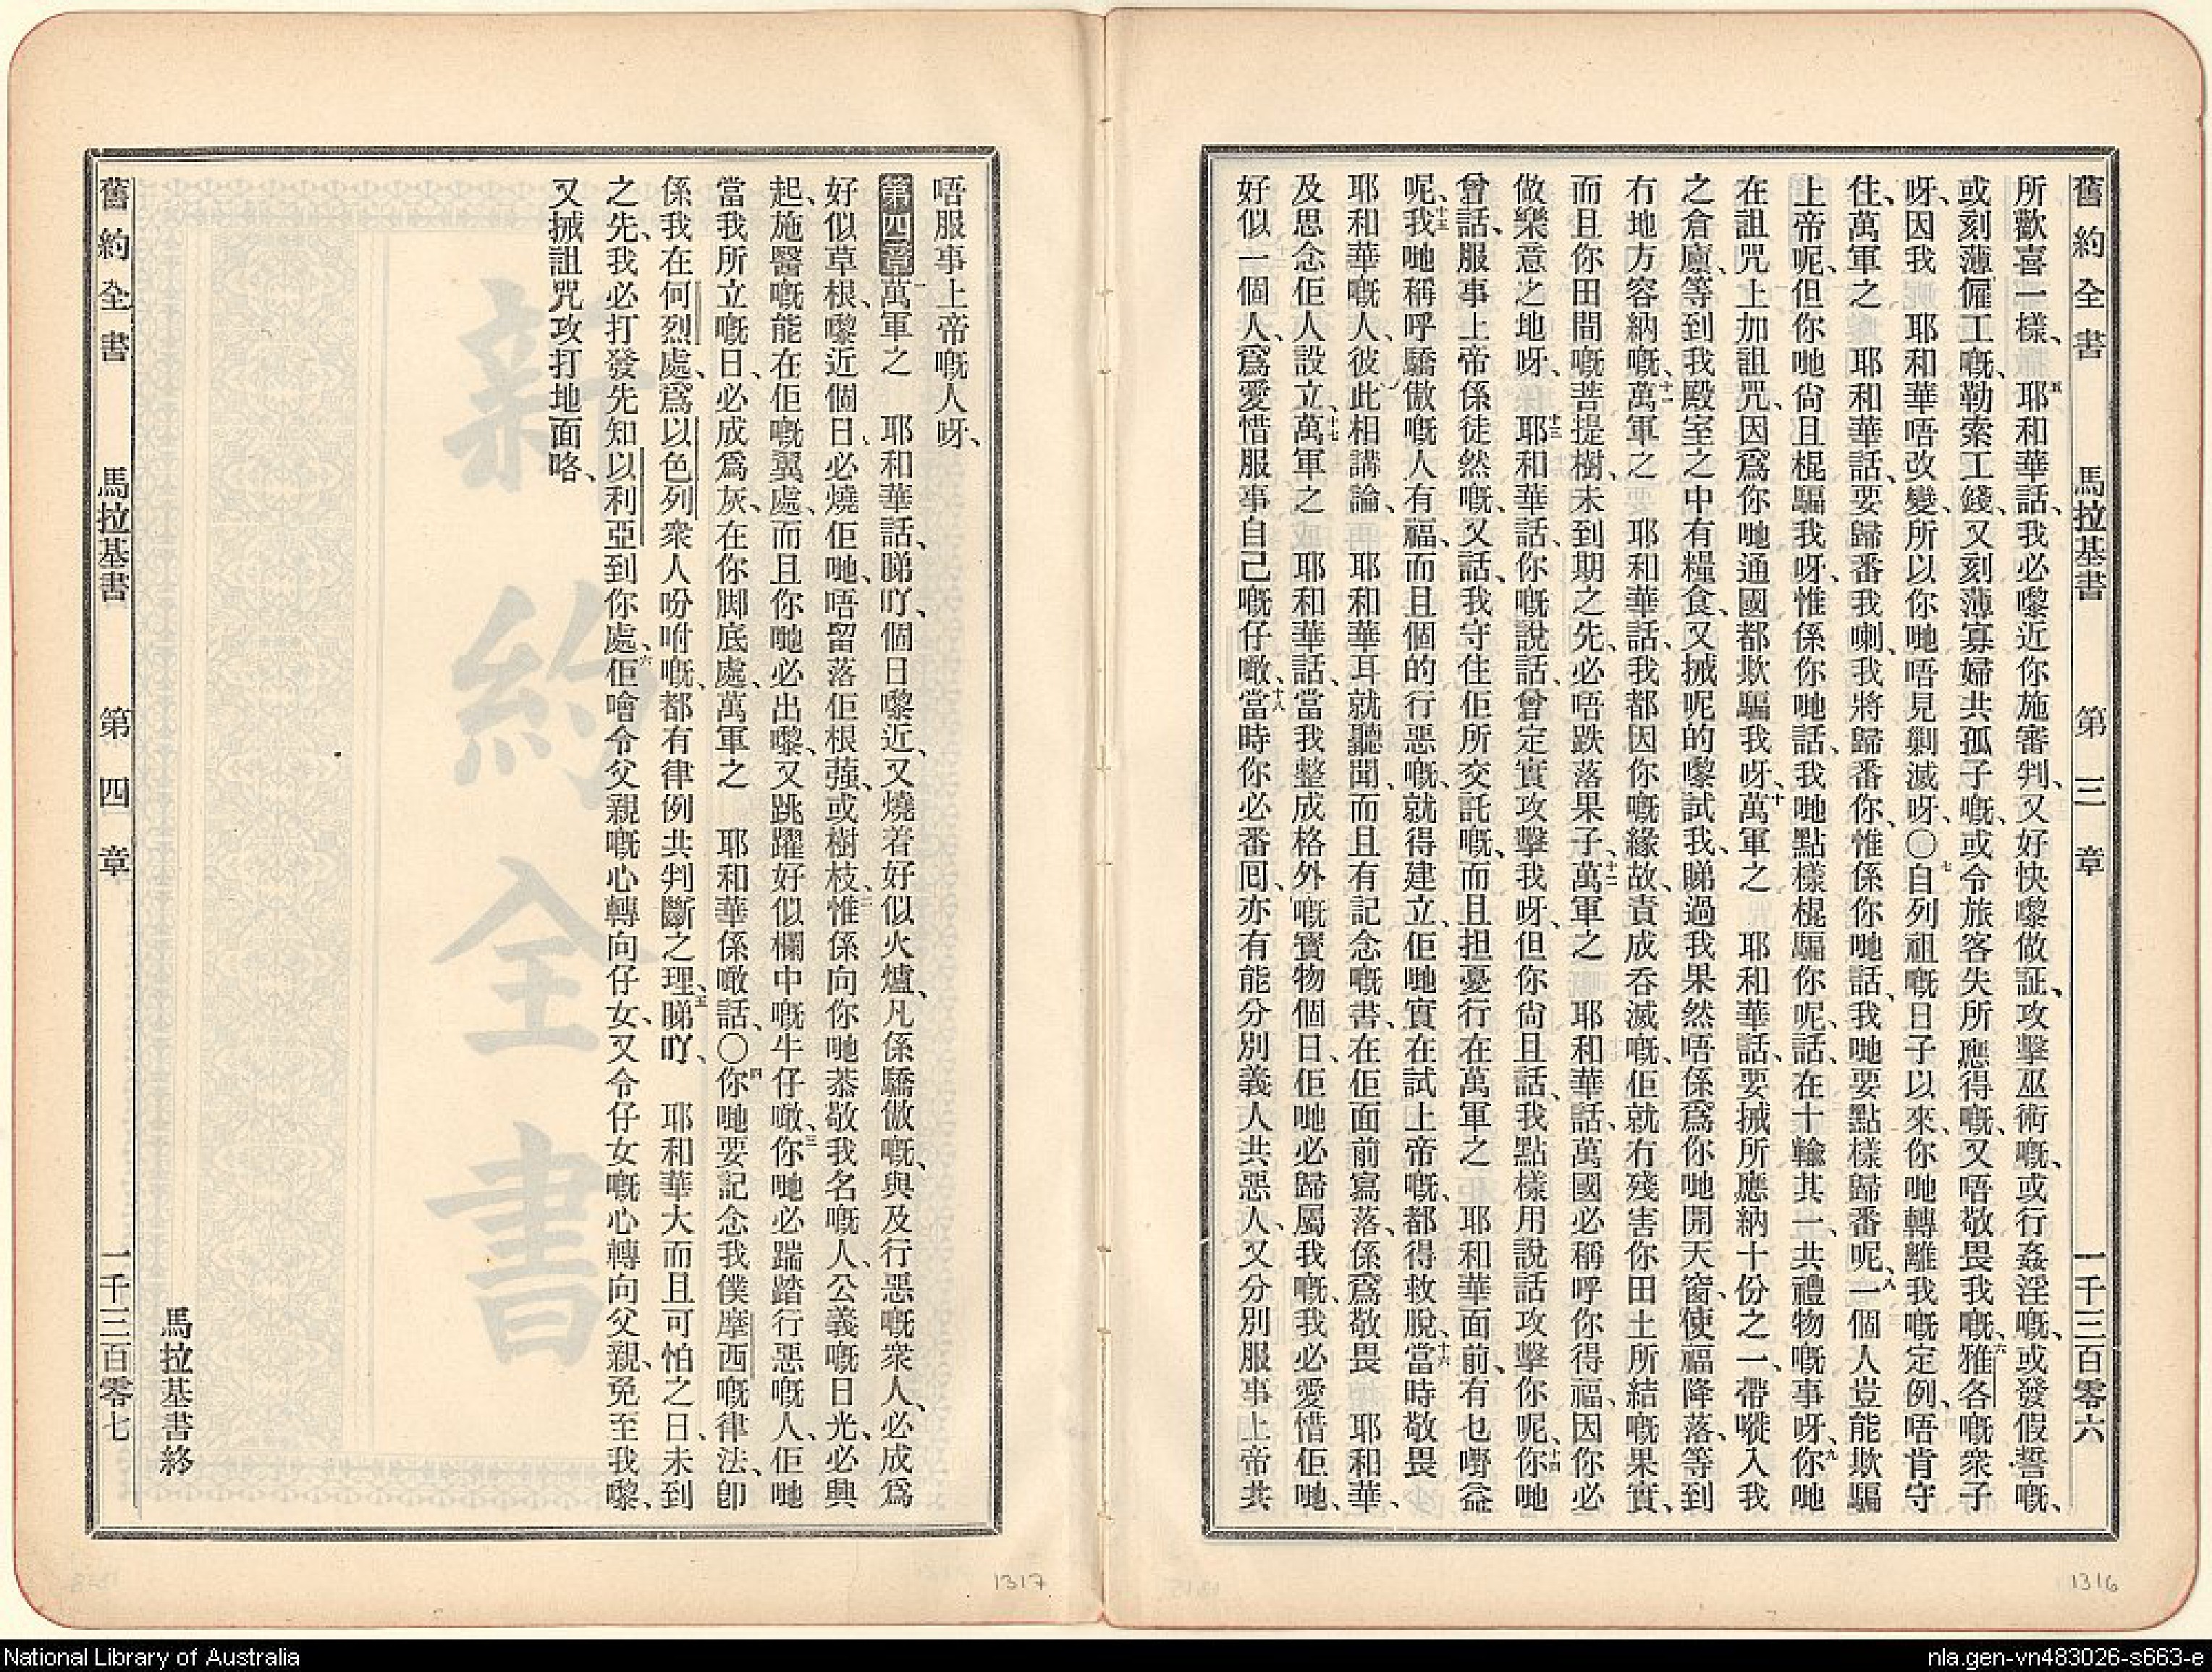 舊約全書 馬拉基書 第三章 一千三百零六
所歡喜一樣、五耶和華話、我必嚟近你施審判、又好快嚟做証、攻擊巫術嘅、或行姦淫嘅、或發假誓嘅、
或刻薄僱工嘅、勒索工錢、又刻薄寡婦共孤子嘅、或令旅客失所應得嘅、又唔敬畏我嘅、六雅各嘅衆子
呀、因我 耶和華唔改變、所以你哋唔見剿滅呀、〇七自列祖嘅日子以來、你哋轉離我嘅定例、唔肯守
住、萬軍之 耶和華話、要歸番我喇、我將歸番你、惟係你哋話、我哋要點樣歸番呢、八一個人豈能欺騙
上帝呢、但你哋尙且棍騙我呀、惟係你哋話、我哋點樣棍騙你呢、話、在十輸其一、共禮物嘅事呀、九你哋
在詛咒上加詛咒、因爲你哋通國都欺騙我呀、十萬軍之 耶和華話、要搣所應納十份之一、帶嚨入我
之倉廩、等到我殿室之中有糧食、又搣呢的嚟試我、睇過我果然唔係爲你哋開天窗、使福降落、等到
冇地方容納嘅、十一萬軍之 耶和華話、我都因你嘅緣故、責成呑滅嘅、佢就冇殘害你田土所結嘅果實、
而且你田間嘅菩提樹、未到期之先、必唔跌落果子、十二萬軍之 耶和華話、萬國必稱呼你得福、因你必
做樂意之地呀、 十三耶和華話、你嘅說話、曾定實攻擊我呀、但你尙且話、我點樣用說話攻擊你呢、十四你哋
曾話、服事上帝係徒然嘅、又話、我守住佢所交託嘅、而且担憂行在萬軍之 耶和華面前、有乜嘢益
呢、十五我哋稱呼驕傲嘅人有福、而且個的行惡嘅、就得建立、佢哋實在試上帝嘅、都得救脫、十六當時敬畏
耶和華嘅人、彼此相講論、 耶和華耳就聽聞、而且有記念嘅書、在佢面前寫落、係爲敬畏 耶和華、
及思念佢人設立、十七萬軍之 耶和華話、當我整成格外嘅寶物個日、佢哋必歸屬我嘅、我必愛惜佢哋、
好似一個人、爲愛惜服事自己嘅仔噉、十八當時你必番囘、亦有能分別義人共惡人、又分別服事上帝共
唔服事上帝嘅人呀、
第四章 一萬軍之 耶和華話、睇吖、個日嚟近、又燒着好似火爐、凡係驕傲嘅、與及行惡嘅衆人、必成爲
好似草根、嚟近個日、必燒佢哋、唔留落佢根䕬、或樹枝、二惟係向你哋恭敬我名嘅人、公義嘅日光、必興
起、施醫嘅能在佢嘅翼處、而且你哋必出嚟、又跳躍好似欄中嘅牛仔噉、三你哋必踹踏行惡嘅人、佢哋
當我所立嘅日、必成爲灰、在你脚底處、萬軍之 耶和華係噉話、〇四你哋要記念我僕摩西嘅律法、卽
係我在何烈處、爲以色列衆人吩咐嘅、都有律例共判斷之理、五睇吖、 耶和華大而且可怕之日、未到
之先、我必打發先知以利亞到你處、六佢噲令父親嘅心轉向仔女、又令仔女嘅心轉向父親、免至我嚟、
又搣詛咒攻打地面咯、
馬拉基書終
舊約全書 馬拉基書 第四章 一千三百零七
1317
1316
National Library of Australia
nla.gen-vn483026-s663-e